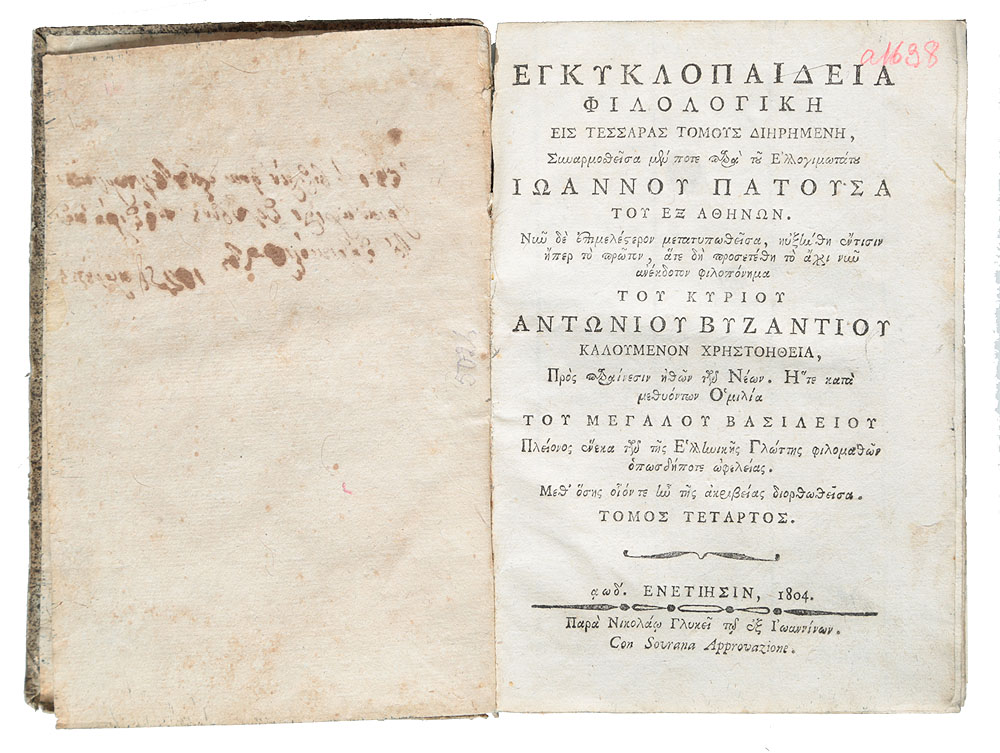 a1698
ΕΓΚΥΚΛΟΠΑΙΔΕΙΑ
ΦΙΛΟΛΟΓΙΚΗ
ΕΙΣ ΤΕΣΣΑΡΑΣ ΤΟΜΟΥΣ ΔΙΗΡΗΜΕΝΗ,
Συναρμοθεῖσα μὲν ποτε παρὰ τοῦ Ἐλλογιμωτάτου
ΙΩΑΝΝΟΥ ΠΑΤΟΥΣΑ
ΤΟΥ ΕΞ ΑΘΗΝΩΝ.
Νῦν δὲ ἐπιμελέστερον μετατυπωθεῖσα, ηὐξήνθη
ἤπερ τὸ πρῶτον, ἅτε δὴ προσετέθη τὸ ἄχρι νῦν
ἀνέκδοτον φιλοπόνημα
ΤΟΥ ΚΥΡΙΟΥ
ΑΝΤΩΝΙΟΥ ΒΥΖΑΝΤΙΟΥ
ΚΑΛΟΥΜΕΝΟΝ ΧΡΗΣΤΟΗΘΕΙΑ,
Πρὸς παραίνεσιν ἠθῶν τῶν Νέων. Ἥτε κατὰ
μεθυόντων Ὁμιλία
ΤΟΥ ΜΕΓΑΛΟΥ ΒΑΣΙΛΕΙΟΥ
Πλείονος ἕνεκα τῶν τῆς Ἑλληνικῆς Γλώττης φιλομαθῶν
ὁπωσδήποτε ὠφελείας.
Μεθ' ὅσης οἷόντε ἦν τῆς ἀκριβείας διορθωθεῖσα.
ΤΟΜΟΣ ΤΕΤΑΡΤΟΣ.
αωδ'. ΕΝΕΤΙΗΣΙΝ, 1804.
Παρὰ Νικολάῳ Γλυκεῖ τῷ ἐξ Ἰωαννίνων.
Con Sovrana Approvazione.